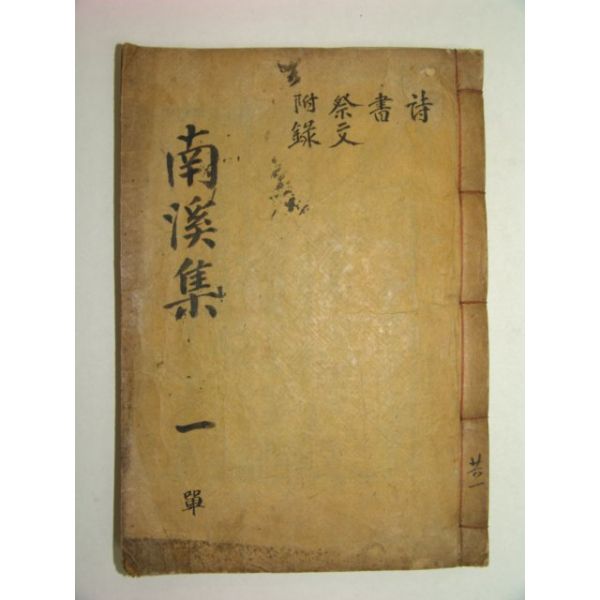 詩
書
祭文
附錄
南溪集
一
單
廿一